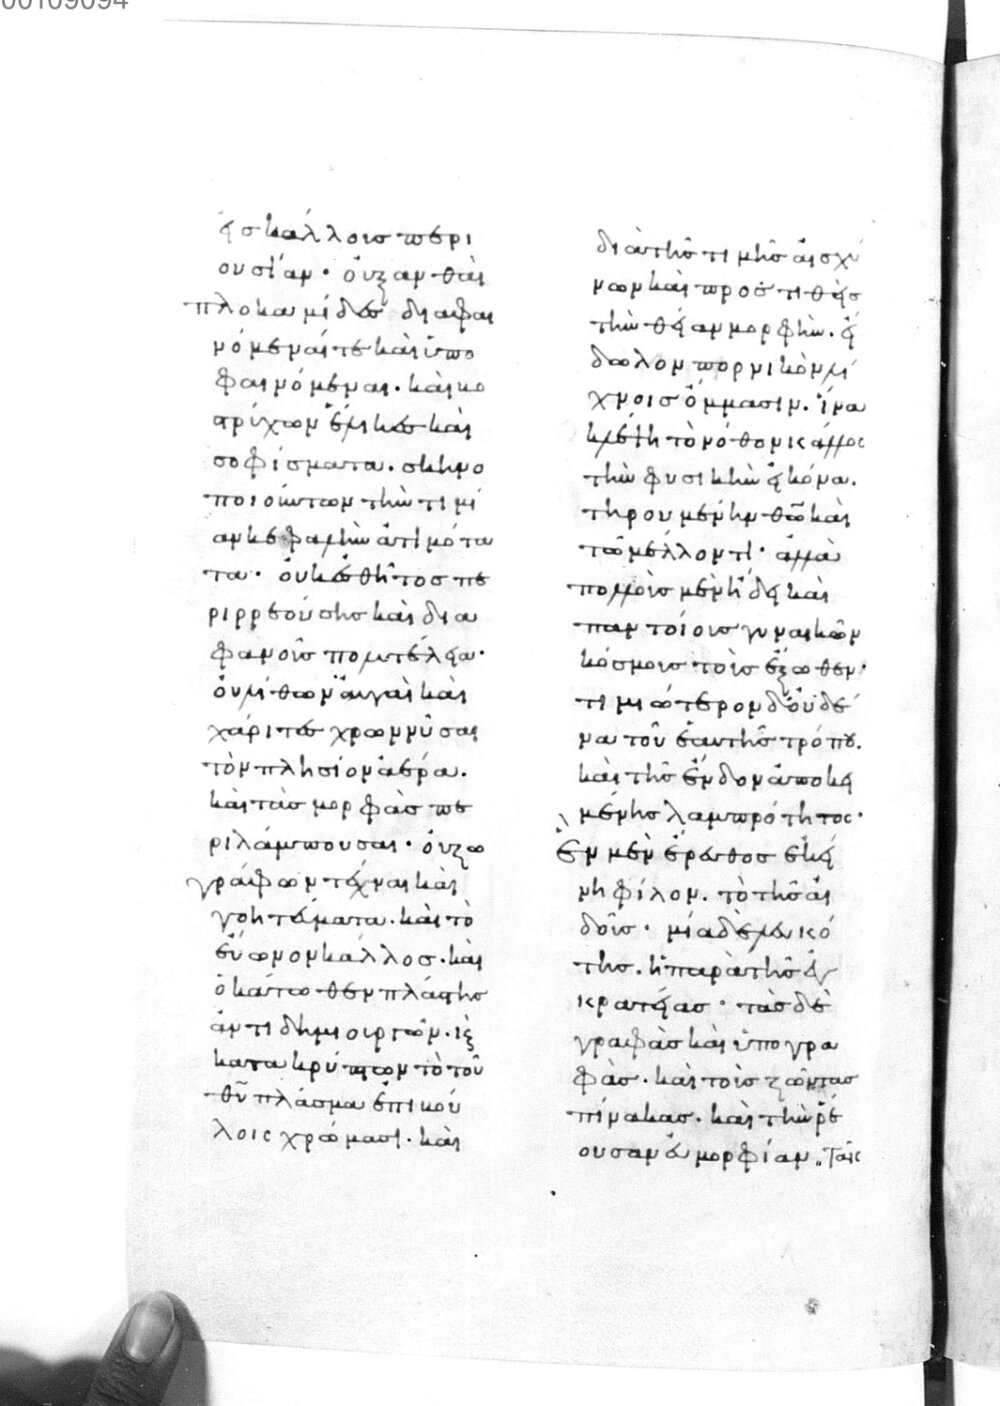 00109094
εἰς κάλλους περι
ουσίαν· οὐ ξανθαὶ
πλοκαμίδες διαφαι
νόμεναί τε καὶ ὑπο
φαινόμεναι· καὶ βο
στρύχων ἕλικες καὶ
σοφίσματα· σκηνο
ποιούντων τὴν τιμί
αν κεφαλὴν ἀτιμότα
τα· οὐκ ἐσθῆτος πε
ριρρεούσης καὶ δια
φανοῦς πολυτέλεια·
οὐ λίθων αὐγαὶ καὶ
χάριτες χρωννῦσαι
τὸν πλησίον ἀέρα·
καὶ τὰς μορφὰς πε
ριλάμπουσαι· οὐ ζω
γράφων τέχναι καὶ
γοητεύματα· καὶ τὸ
εὔωνον κάλλος· καὶ
ὁ κάτωθεν πλάστης
ἀντιδημιουργῶν·
κατακρύπτων τὸ τοῦ
θῡ πλάσμα ἐπιβού
λοις χρώμασι· καὶ
διὰ τῆς τιμῆς αἰσχύ
νων καὶ προστιθεὶς
τὴν θείαν μορφὴν· εἴ
δωλον πορνικὸν λί
χνοις ὄμμασιν· ἵνα
κλέψῃ τὸ νόθον κάλλος
τὴν φυσικὴν εἰκόνα·
τηρουμένην θω̄ καὶ
τῶ μέλλοντι· ἀλλὰ
πολλοὺς μὲν ᾔδει καὶ
παντοίους γυναικῶν
κόσμους τοὺς ἔξωθεν·
τιμιώτερον δ' οὐδέ
να τοῦ ἑαυτῆς τρόπου·
καὶ τῆς ἔνδον ἀποκει
μένης λαμπρότητος·
ἓν μὲν ἔρευθος ἐκεί
νη φίλον· τὸ τῆς αἰ
δοῦς· μία δὲ λευκό
της· ἡ παρὰ τῆς ἐγ
κρατείας· τὰς δὲ
γραφὰς καὶ ὑπογρα
φὰς· καὶ τοὺς ζῶντας
πίνακας· καὶ τὴν ῥέ
ουσαν εὐμορφίαν· ταῖς